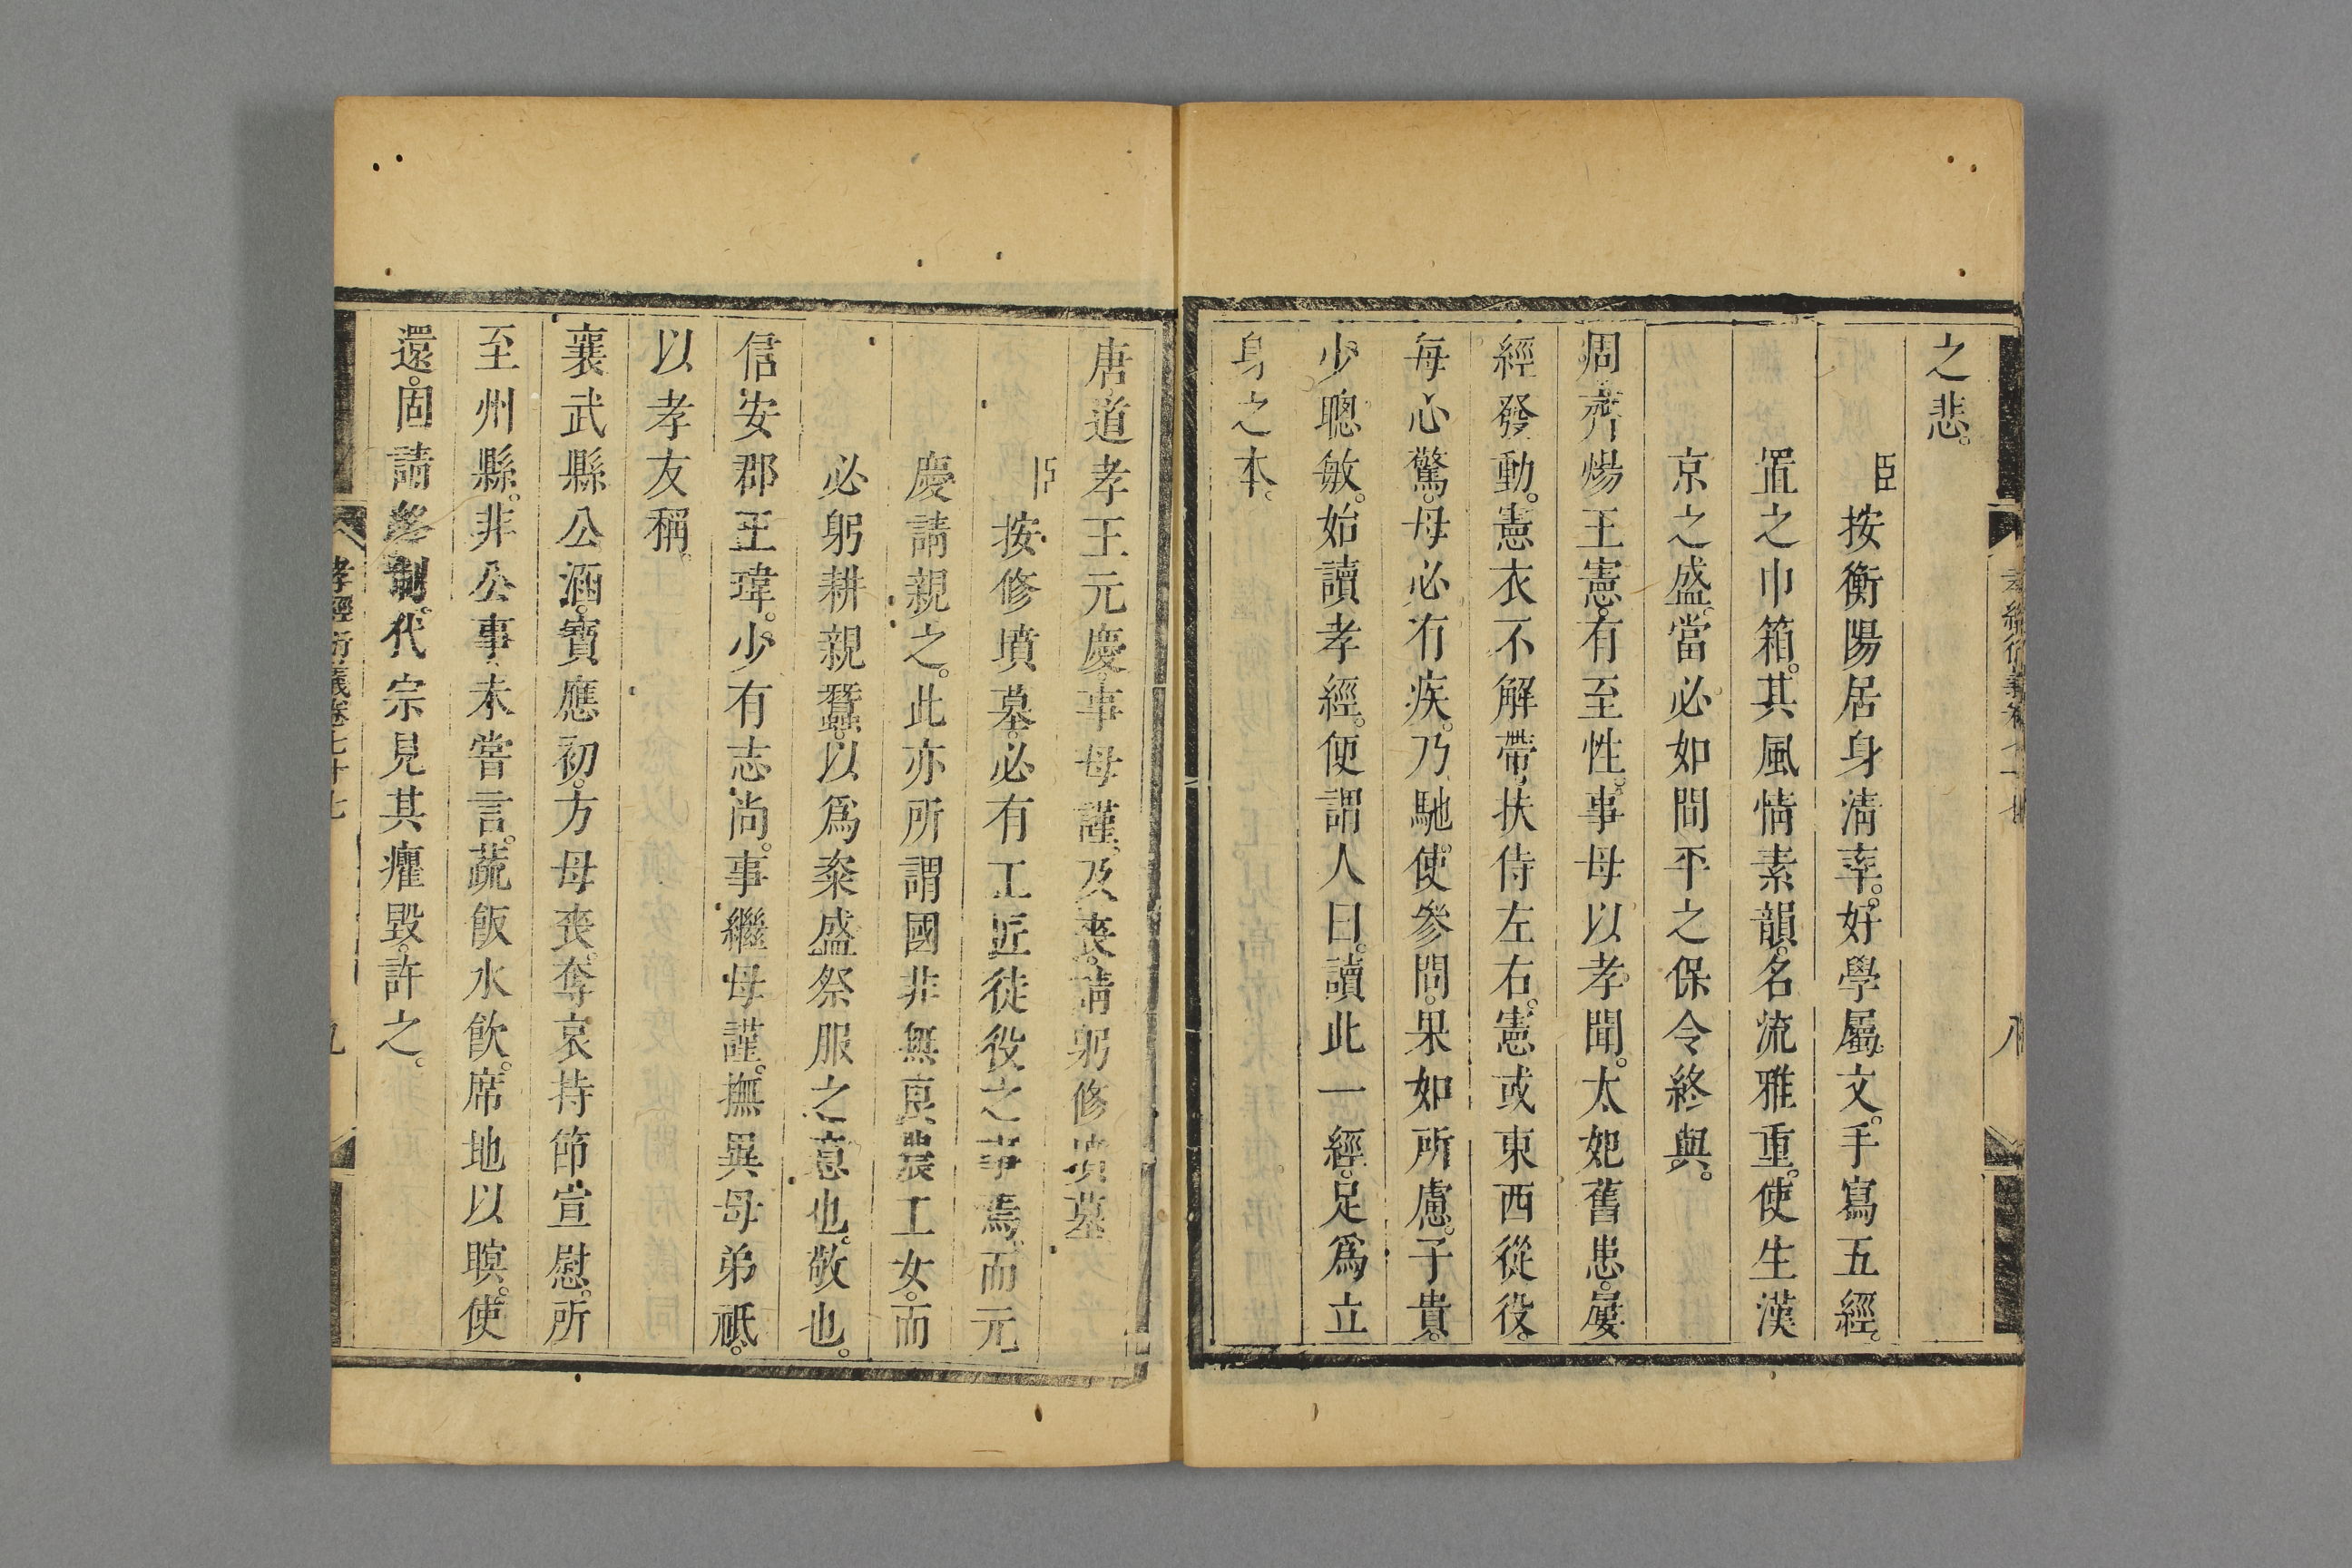 之悲。
臣按衡陽居身清率。好學屬文。手寫五經。
置之巾箱。其風情素韻。名流雅重。使生漢
京之盛。當必如間平之保令終與。
周齊煬王憲。有至性。事母以孝聞。太妃舊患。屢
經發動。憲衣不解帶。扶侍左右。憲或東西從役。
每心驚。母必有疾。乃馳使參問。果如所慮。子貴。
少聰敏。始讀孝經。便謂人曰。讀此一經。足爲立
身之本。
八
唐道孝王元慶。事母謹。及喪。請躬修墳墓
臣按修墳墓。必有工匠徒役之事焉。而元
慶請親之。此亦所謂國非無良農工女。而
必躬耕親蠶。以爲粢盛祭服之意也。敬也。
信安郡王瑋。少有志尚。事繼母謹。撫異母弟祗。
以孝友稱。
襄武縣公涵。寶應初。方母喪。奪哀持節宣慰。所
至州縣。非公事未嘗言。蔬飯水飲。席地以瞑。使
還。固請終制。代宗見其癯毀。許之。
孝經衍義卷七十七